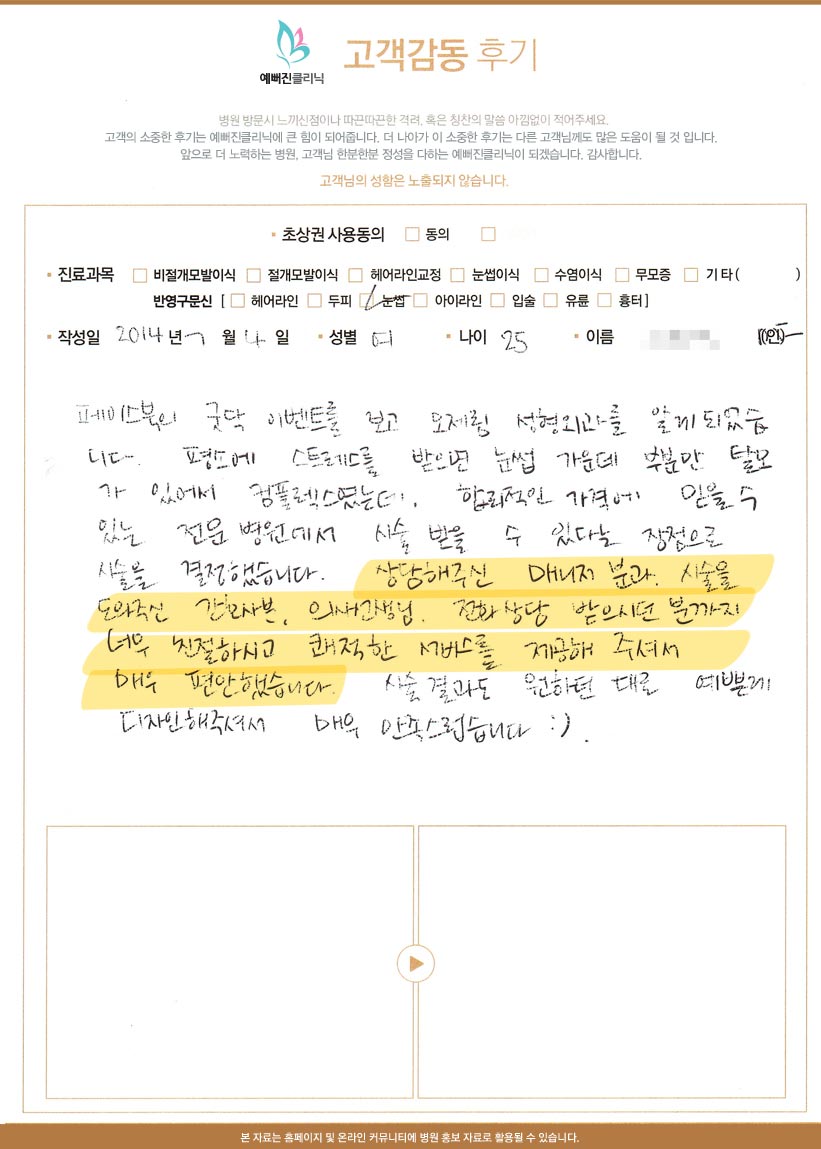 예뻐진클리닉
고객감동 후기
병원 방문시 느끼신점이나 따끈따끈한 격려, 혹은 칭찬의 말씀 아낌없이 적어주세요.
고객의 소중한 후기는 예뻐진클리닉에 큰 힘이 되어줍니다. 더 나아가 이 소중한 후기는 다른 고객님께도 많은 도움이 될 것 입니다.
앞으로 더 노력하는 병원, 고객님 한분한분 정성을 다하는 예뻐진클리닉이 되겠습니다. 감사합니다.
고객님의 성함은 노출되지 않습니다.
• 초상권 사용동의 □ 동의 □
• 진료과목 □ 비절개모발이식 □ 절개모발이식 □ 헤어라인교정 □ 눈썹이식 □ 수염이식 □ 무모증 □ 기타( )
반영구문신 [ □ 헤어라인 □ 두피 □ 눈썹 □ 아이라인 □ 입술 □ 유륜 □ 흉터 ]
• 작성일 2014년 7월 4일 • 성별 여 • 나이 25 • 이름 (인)
페이스북의 굿닥 이벤트를 보고 오제림 성형외과를 알게되었습
니다. 평소에 스트레스를 받으면 눈썹 가운데 부분만 탈모
가 있어서 컴플렉스였는데, 합리적인 가격에 믿을 수
있는 전문병원에서 시술 받을 수 있다는 장점으로
시술을 결정했습니다. 상담해주신 매니저 분과, 시술을
도와주신 간호사분, 의사선생님, 전화상담 받으시던 분까지
너무 친절하시고 쾌적한 서비스를 제공해 주셔서
매우 편안했습니다. 시술결과도 원하던 대로 예쁘게
디자인해주셔서 매우 만족스럽습니다 :).
본 자료는 홈페이지 및 온라인 커뮤니티에 병원 홍보 자료로 활용될 수 있습니다.